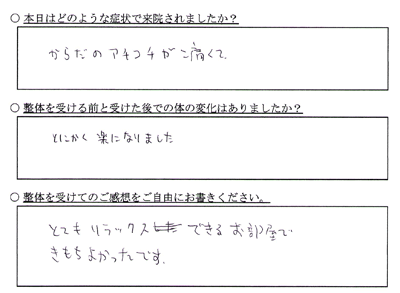 ○ 本日はどのような症状で来院されましたか？
からだのアチコチが痛くて、
○ 整体を受ける前と受けた後での体の変化はありましたか？
とにかく楽になりました
○ 整体を受けてのご感想をご自由にお書きください。
とてもリラックスできるお部屋で
きもちよかったです。